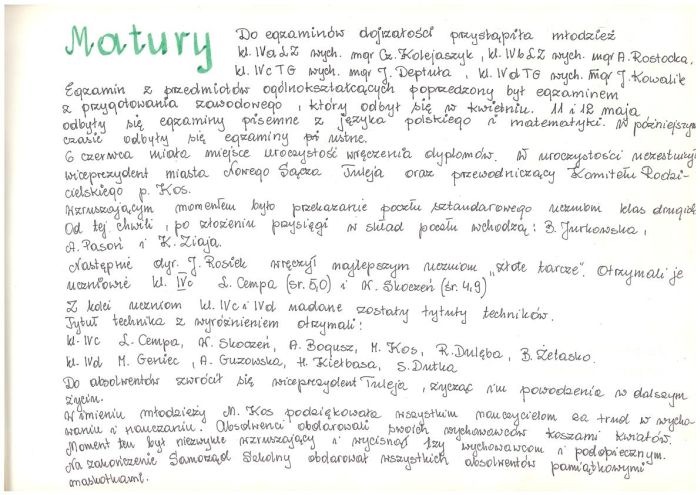 Matury
Do egzaminów dojrzałości przystąpiła młodzież
kl. IVa LZ wych. mgr Cz. Kolejaszyk, kl. IVb LZ wych. mgr A. Rostocka,
kl. IVc TG wych. mgr J. Deptuła, kl. IVd TG wych. mgr J. Kowalik
Egzamin z przedmiotów ogólnokształcących poprzedzony był egzaminem
z przygotowania zawodowego, który odbył się w kwietniu. 11 i 12 maja
odbyły się egzaminy pisemne z języka polskiego i matematyki. W późniejszym
czasie odbyły się egzaminy ustne.
6 czerwca miała miejsce uroczystość wręczenia dyplomów. W uroczystości uczestniczył
wiceprezydent miasta Nowego Sącza Tuleja oraz przewodniczący Komitetu Rodzi-
cielskiego p. Kos.
Wzruszającym momentem było przekazanie pocztu sztandarowego uczniom klas drugich
Od tej chwili, po złożeniu przysięgi w skład pocztu wchodzą: B. Jurkowska,
A. Pasoń i K. Ziaja.
Następnie dyr. J. Rosiek wręczył najlepszym uczniom „złote tarcze". Otrzymali je
uczniowie kl. IVc Ł. Cempa (śr. 5,0) i K. Skoczeń (śr. 4,9)
Z kolei uczniom kl. IVc i IVd nadane zostały tytuły techników.
Tytuł technika z wyróżnieniem otrzymali:
kl. IVc Ł. Cempa, K. Skoczeń, A. Bogusz, M. Kos, R. Dulęba, B. Żelasko.
kl. IVd M. Geniec, A. Guzowska, H. Kiełbasa, S. Dutka
Do absolwentów zwrócił się wiceprezydent Tuleja, życząc im powodzenia w dalszym
życiu.
W imieniu młodzieży M. Kos podziękowała wszystkim nauczycielom za trud w wycho-
waniu i nauczaniu. Absolwenci obdarowali swoich wychowawców koszami kwiatów.
Moment ten był niezwykle wzruszający i wycisnął łzy wychowawcom i podopiecznym.
Na zakończenie Samorząd Szkolny obdarował wszystkich absolwentów pamiątkowymi
maskotkami.